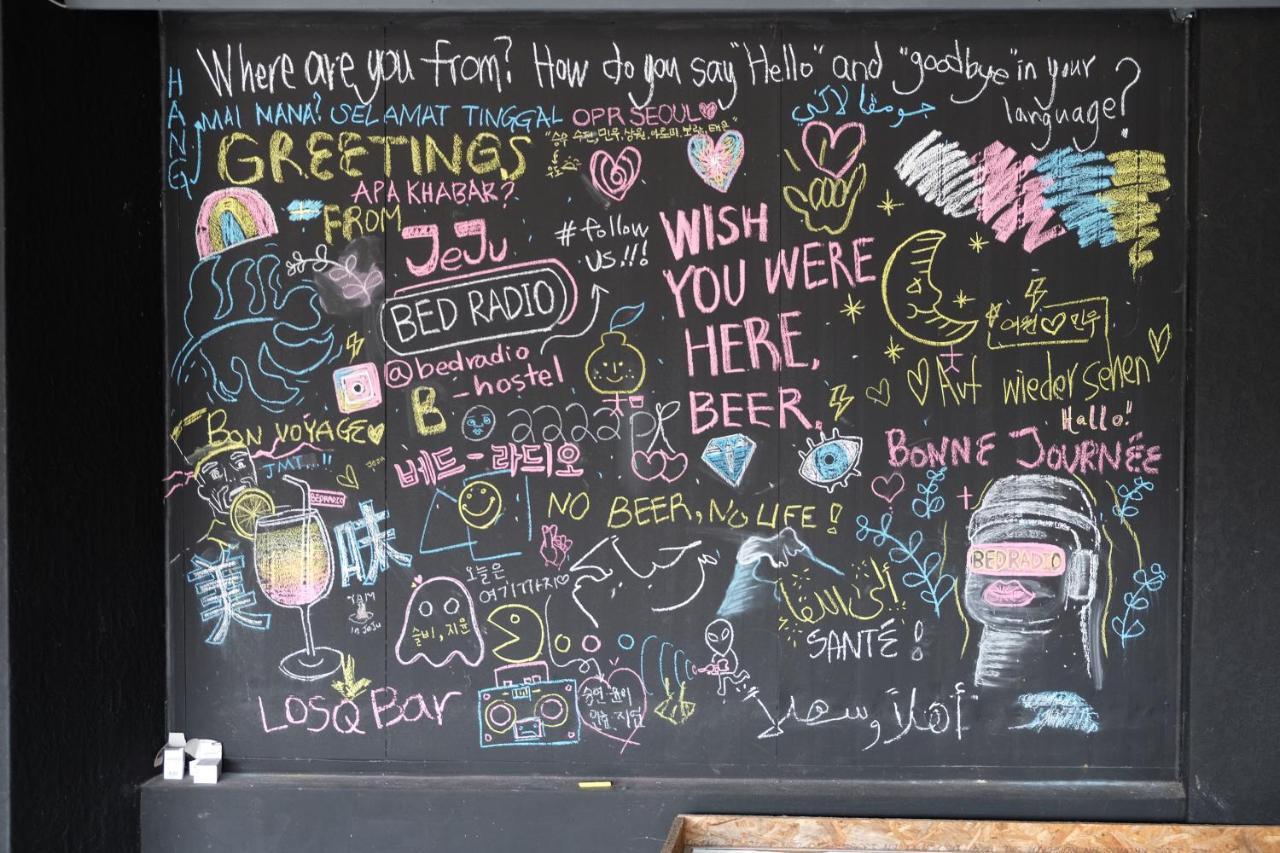 Where are you from? How do you say "Hello" and "goodbye" in your
language?
HANG
MAI MANA? SELAMAT TINGGAL
OPR SEOUL
GREETINGS
APA KHABAR?
FROM
JeJu
#follow
us!!!
BED RADIO
@bedradio
-hostel
B
WISH
YOU WERE
HERE,
BEER.
여원♡민우
Auf wiedersehen
Hallo!
BONNE JOURNÉE
BON VOYAGE
JMT...!!
BEDRADIO
베드-라디오
NO BEER, NO LIFE!
美
味
YAM
in JeJu
오늘은
여기까지♡
슬비, 지윤
مرحبا
إلى اللقاء
SANTÉ!
BEDRADIO
أهلاً وسهلاً
LOSQ Bar